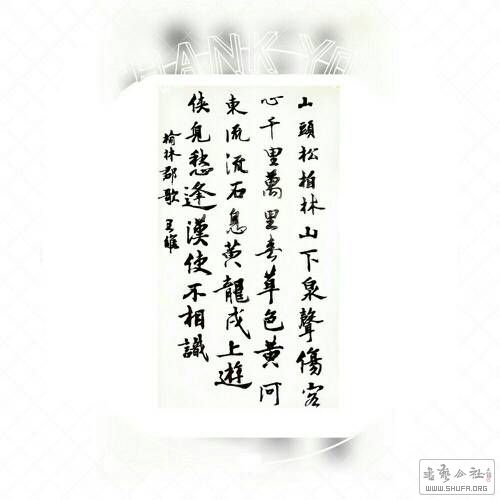 HANK YO
山頭松柏林山下泉聲傷客
心千里萬里春草色黃河
東流流石息黃龍戍上遊
俠兒愁逢漢使不相識
榆林郡歌 王維
书艺公社
WWW.SHUFA.ORG